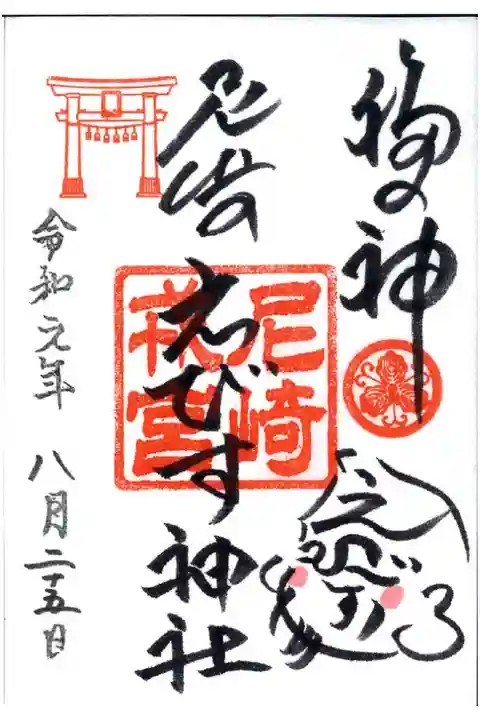 福の神
尼崎えびす神社
尼崎
戎宮
令和元年 八月二十五日